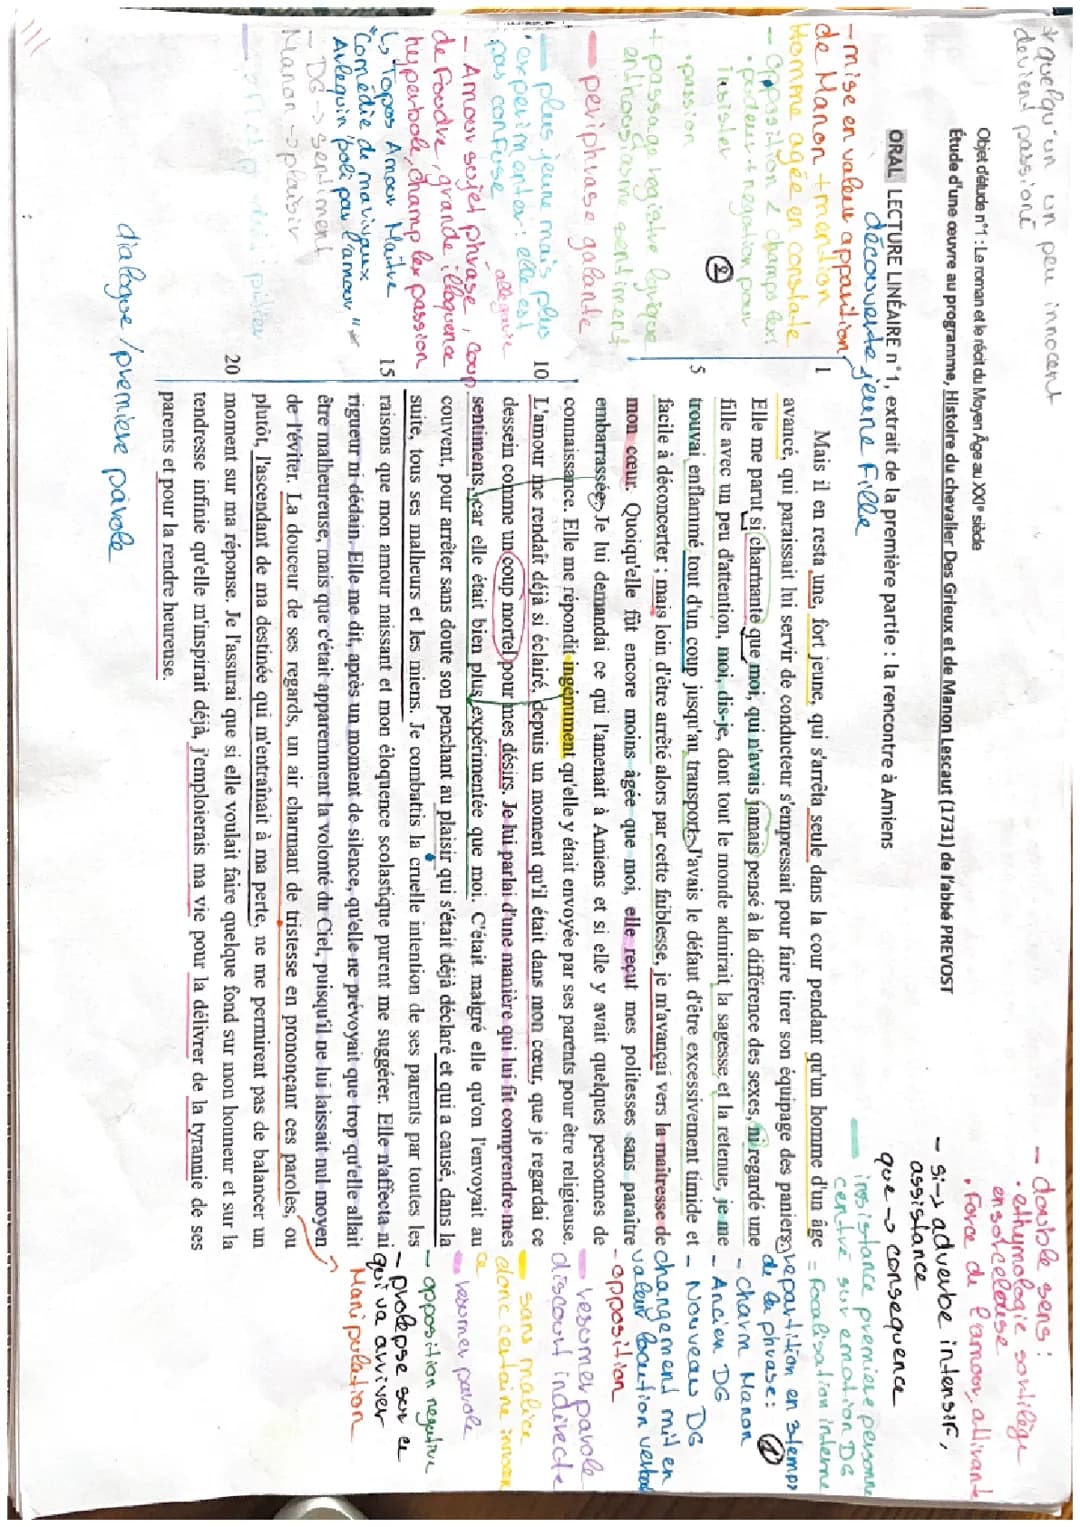 * quelqu'un un peu innocent
devient passioné
Objet d'étude n°1 : Le roman et le récit du Moyen Âge au XXIe siècle
Étude d'une œuvre au programme, Histoire du chevalier Des Grieux et de Manon Lescaut (1731) de l'abbé PREVOST
ORAL LECTURE LINÉAIRE n°1, extrait de la première partie : la rencontre à Amiens
découverte jeune fille
- mise en valeur apparition
de Manon + mention
homme agée en constate
- opposition 2 champs lexi
. pardeur + negation pour
insister
. passion
②
+ passage registre lyrique
enthousiasme sentiment
periphrase galante
plus jeune mais plus
experimenter : elle est
pas confuse
allégorie
- Amour sujet phrase, coup
de foudre, grande éloquence
hyperbole, champ lex passion
↳ Topos Amour Maître
"comédie de marivaux
Arlequin poli par l'amour"
- DG → sentiment
Manon → plaisir
dialogue / premiere parole
- double sens :
. ethymologie sortilège
ensorceleuse
. Force de l'amour, attirante
- si → adverbe intensif,
assistance
que → consequence
insistance premiere personne
centré sur emotion DG
= Focalisation interne
repartition en 3 temps
de la phrase : ①
- charm Manon
- Ancien DG
- Nouveau DG
changement mit en
valeur locution verbal
- opposition
resumer parole
discourt indirecte
sans malice
donc certaine innocen
ce
resumer parole
- opposition negative
- prolepse sur ce
qui va arriver
Manipulation
1 Mais il en resta une, fort jeune, qui s'arrêta seule dans la cour pendant qu'un homme d'un âge
avancé, qui paraissait lui servir de conducteur s'empressait pour faire tirer son équipage des paniers.
Elle me parut si charmante que moi, qui n'avais jamais pensé à la différence des sexes, ni regardé une
fille avec un peu d'attention, moi, dis-je, dont tout le monde admirait la sagesse et la retenue, je me
5 trouvai enflammé tout d'un coup jusqu'au transport. J'avais le défaut d'être excessivement timide et
facile à déconcerter ; mais loin d'être arrêté alors par cette faiblesse, je m'avançai vers la maîtresse de
mon cœur. Quoiqu'elle fût encore moins âgée que moi, elle reçut mes politesses sans paraître
embarrassée. Je lui demandai ce qui l'amenait à Amiens et si elle y avait quelques personnes de
connaissance. Elle me répondit ingénument qu'elle y était envoyée par ses parents pour être religieuse.
10 L'amour me rendait déjà si éclairé, depuis un moment qu'il était dans mon cœur, que je regardai ce
dessein comme un coup mortel pour mes désirs. Je lui parlai d'une manière qui lui fit comprendre mes
sentiments, car elle était bien plus expérimentée que moi. C'était malgré elle qu'on l'envoyait au
couvent, pour arrêter sans doute son penchant au plaisir qui s'était déjà déclaré et qui a causé, dans la
suite, tous ses malheurs et les miens. Je combattis la cruelle intention de ses parents par toutes les
15 raisons que mon amour naissant et mon éloquence scolastique purent me suggérer. Elle n'affecta ni
rigueur ni dédain. Elle me dit, après un moment de silence, qu'elle ne prévoyait que trop qu'elle allait
être malheureuse, mais que c'était apparemment la volonté du Ciel, puisqu'il ne lui laissait nul moyen
de l'éviter. La douceur de ses regards, un air charmant de tristesse en prononçant ces paroles, ou
plutôt, l'ascendant de ma destinée qui m'entraînait à ma perte, ne me permirent pas de balancer un
20 moment sur ma réponse. Je l'assurai que si elle voulait faire quelque fond sur mon honneur et sur la
tendresse infinie qu'elle m'inspirait déjà, j'emploierais ma vie pour la délivrer de la tyrannie de ses
parents et pour la rendre heureuse.